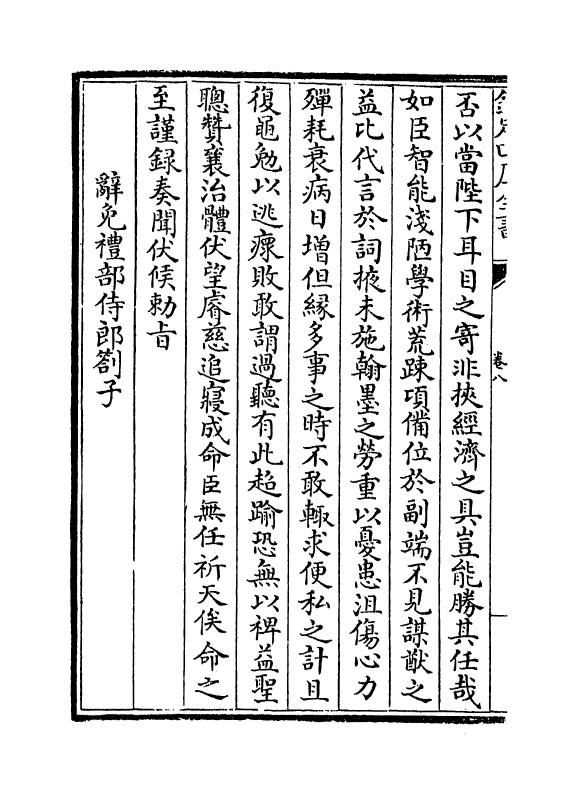 欽定四庫全書
卷八
否以當陛下耳目之寄非挾經濟之具豈能勝其任哉
如臣智能淺陋學術荒疎項備位於副端不見謀猷之
益比代言於詞掖未施翰墨之勞重以憂患沮傷心力
殫耗衰病日增但緣多事之時不敢輙求便私之計且
復黽勉以逃瘝敗敢謂過聽有此超踰恐無以裨益聖
聰贊襄治體伏望睿慈追寢成命臣無任祈天俟命之
至謹録奏聞伏候勅旨
辭免禮部侍郎劄子